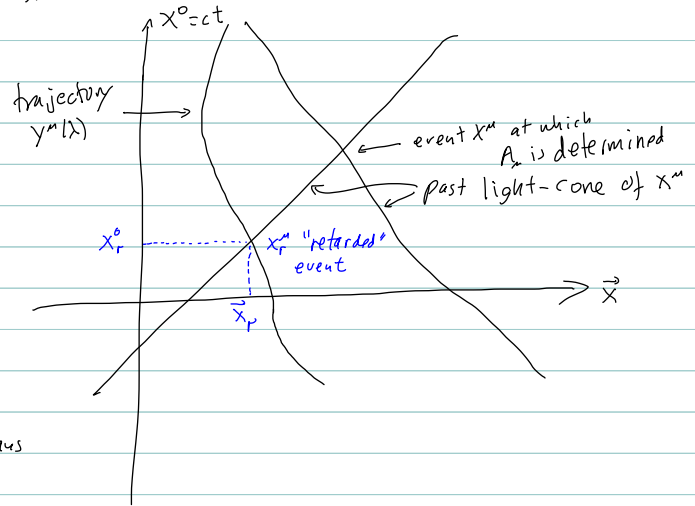 x⁰=ct
trajectory
y^μ(λ)
event x^μ at which
A_μ is determined
past light-cone of x^μ
x_r⁰
x_r^μ "retarded"
event
x⃗
x⃗_r